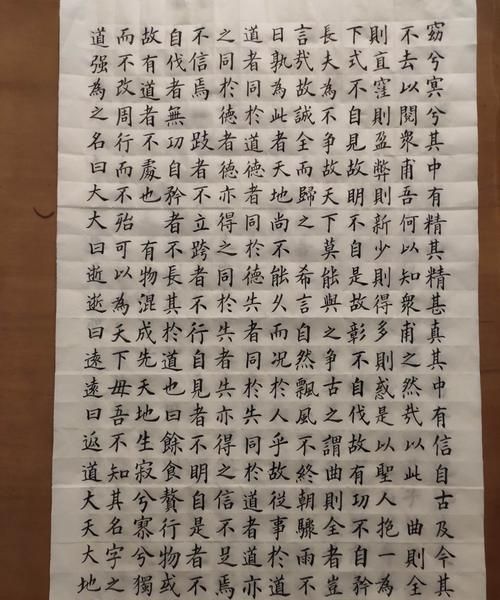 窈兮冥兮其中有精其精甚真其中有信自古及今其
不去以閱衆甫吾何以知衆甫之然哉以此 曲則全
則直窪則盈弊則新少則得多則惑是以聖人抱一為
下式不自見故明不自是故彰不自伐故有功不自矜
長夫為不爭故天下莫能與之爭古之謂曲則全者豈
言哉故誠全而歸之 希言自然飄風不終朝驟雨不
日孰為此者天地尚不能久而況於人乎故從事於道
道者同於道德者同於德失者同於失同於道者道亦
之同於德者德亦得之同於失者失亦得之信不足焉
不信焉 跂者不立跨者不行自見者不明自是者不
自伐者無功自矜者不長其於道也曰餘食贅行物或
故有道者不處也 有物混成先天地生寂兮寥兮獨
而不改周行而不殆可以為天下毋吾不知其名字之
道强為之名曰大大曰逝逝曰遠遠曰返道大天大地